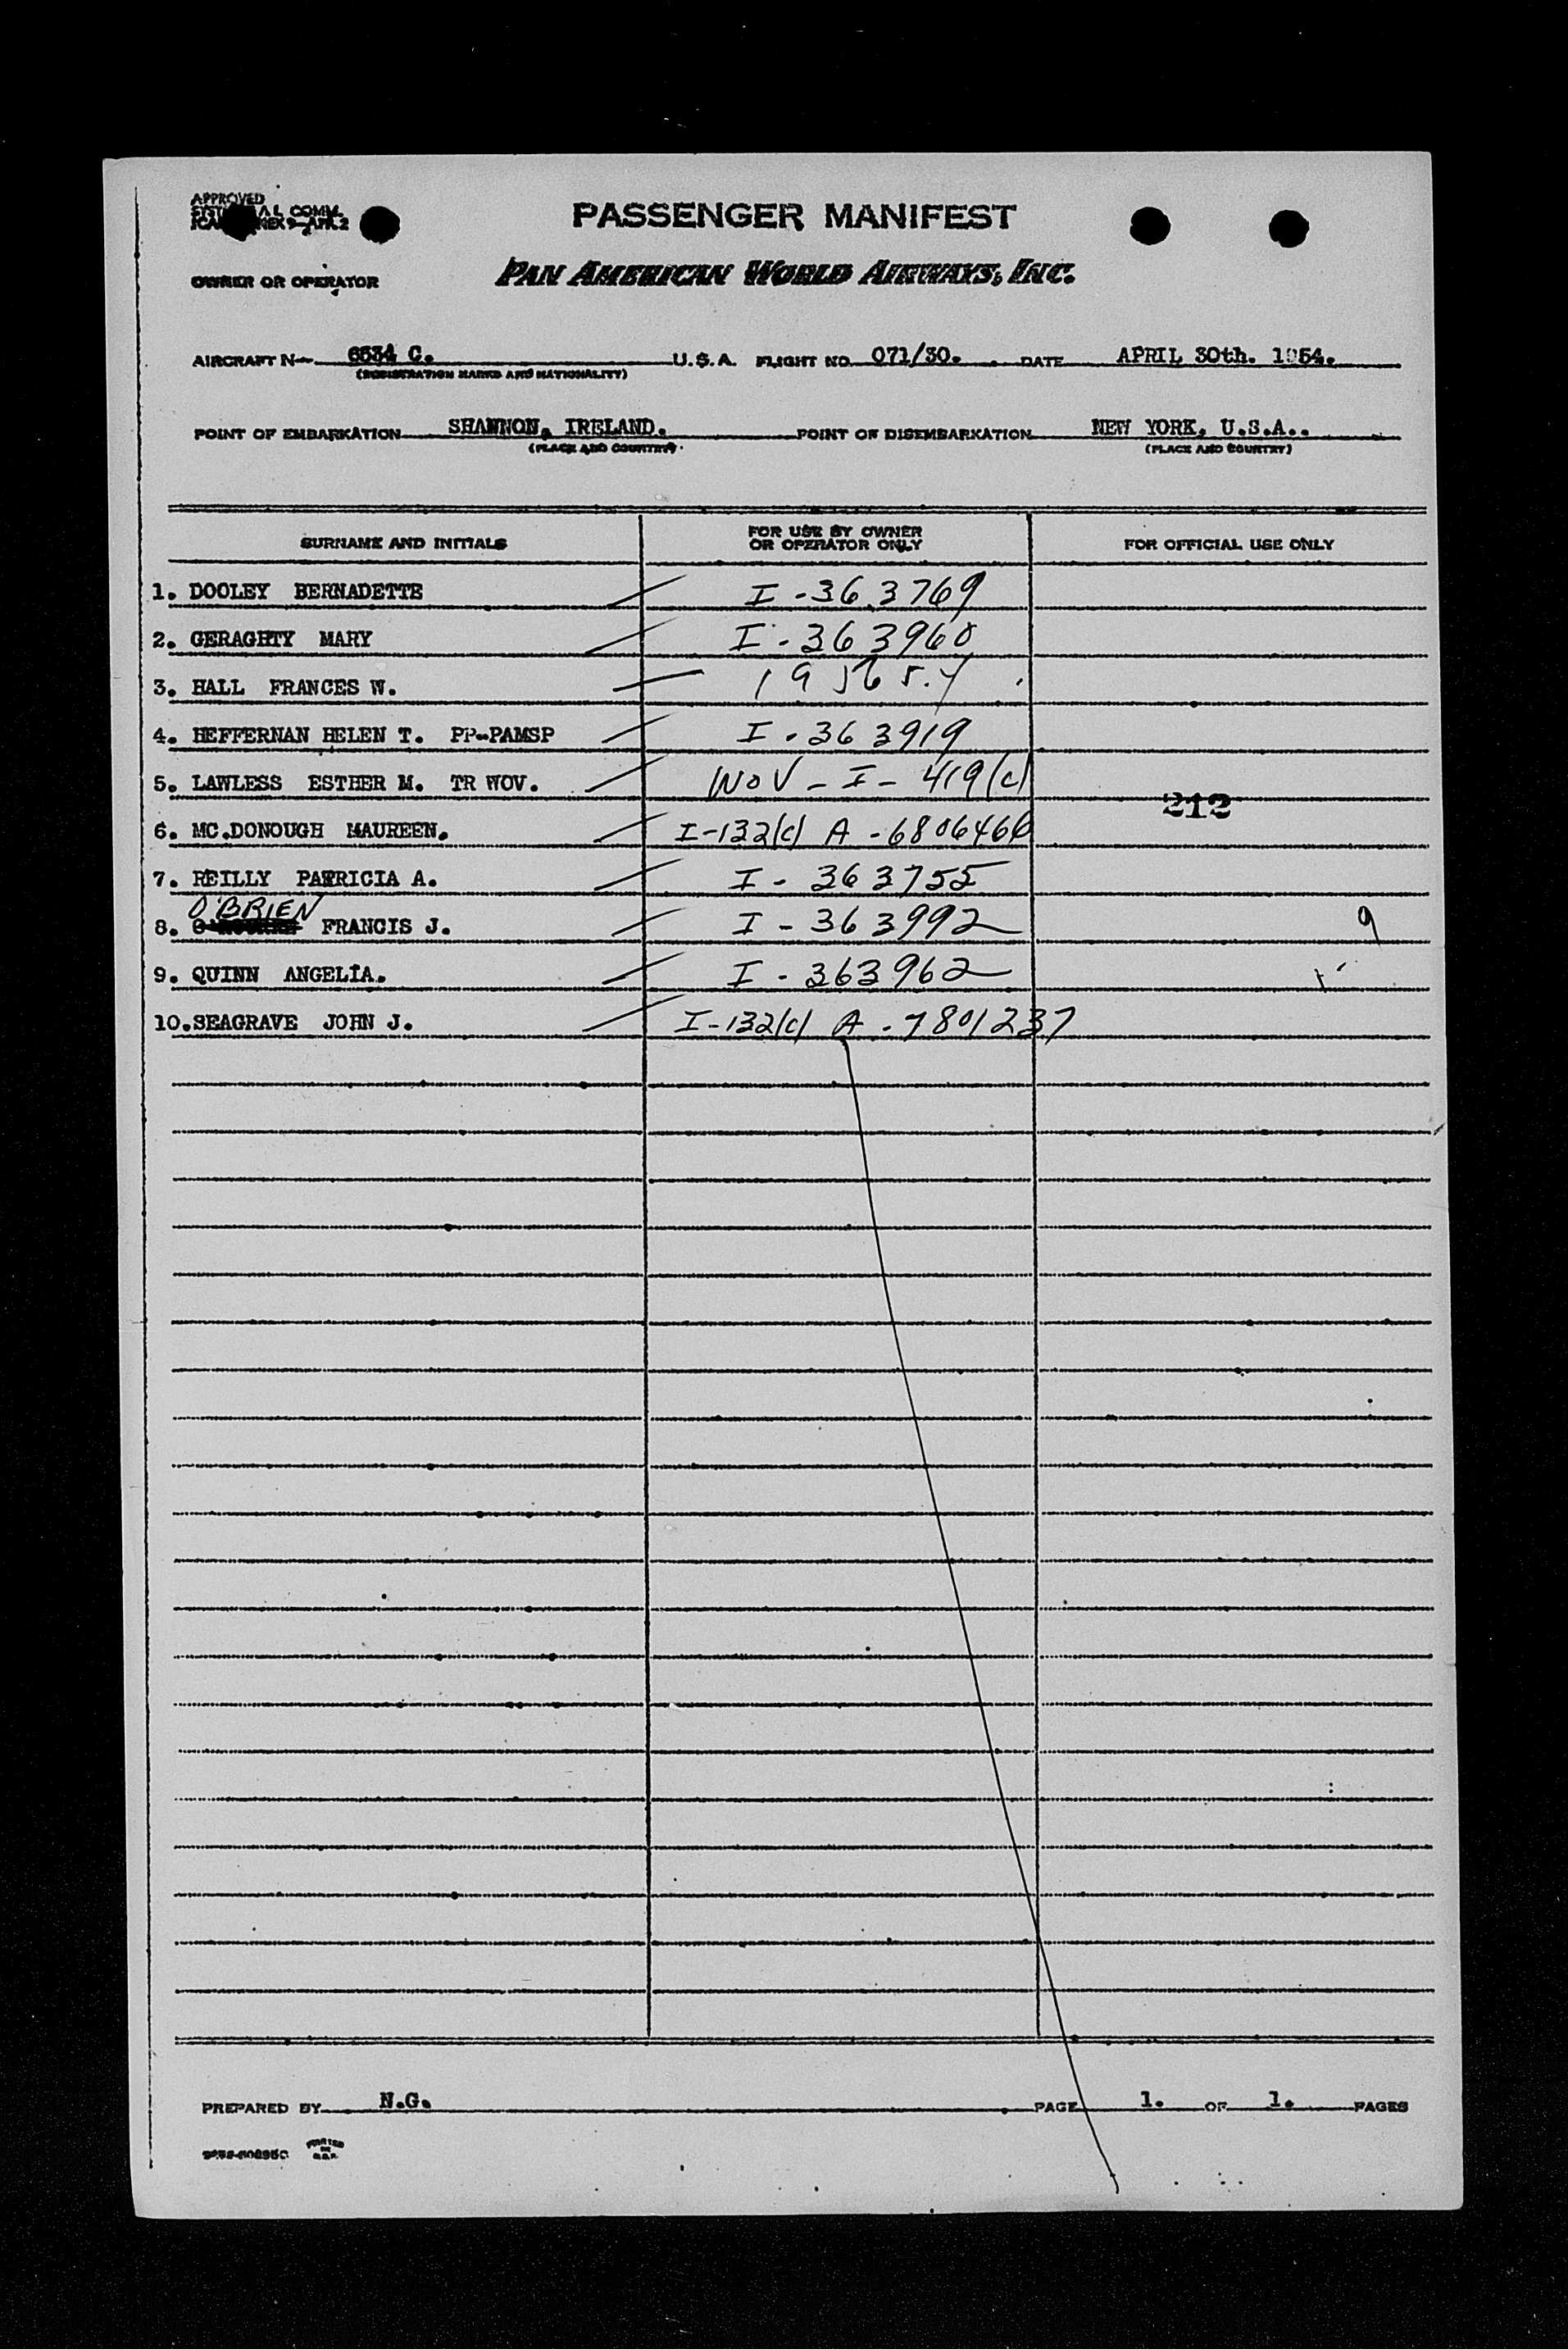 APPROVED
COMM.
PASSENGER MANIFEST
OWNER OR OPERATOR
PAN AMERICAN WORLD AIRWAYS, INC.
AIRCRAFT N— 6534 C. U.S.A. FLIGHT NO. 071/30. DATE APRIL 30th. 1954.
(REGISTRATION MARKS AND NATIONALITY)
POINT OF EMBARKATION SHANNON, IRELAND. POINT OF DISEMBARKATION NEW YORK, U.S.A..
(PLACE AND COUNTRY) (PLACE AND COUNTRY)
SURNAME AND INITIALS FOR USE BY OWNER OR OPERATOR ONLY FOR OFFICIAL USE ONLY
1. DOOLEY BERNADETTE I-363769
2. GERAGHTY MARY I-363960
3. HALL FRANCES W.
4. HEFFERNAN HELEN T. PP-PAMSP I-363919
5. LAWLESS ESTHER M. TR WOV. WOV-I-419(c)
212
6. MC.DONOUGH MAUREEN. I-132(c) A-6806466
7. REILLY PATRICIA A. I-363755
O'BRIEN
8. FRANCIS J. I-363992 9
9. QUINN ANGELIA. I-363962
10. SEAGRAVE JOHN J. I-132(c) A-7801237
PREPARED BY N.G. PAGE 1. OF 1. PAGES
PRINTED IN U.S.A.